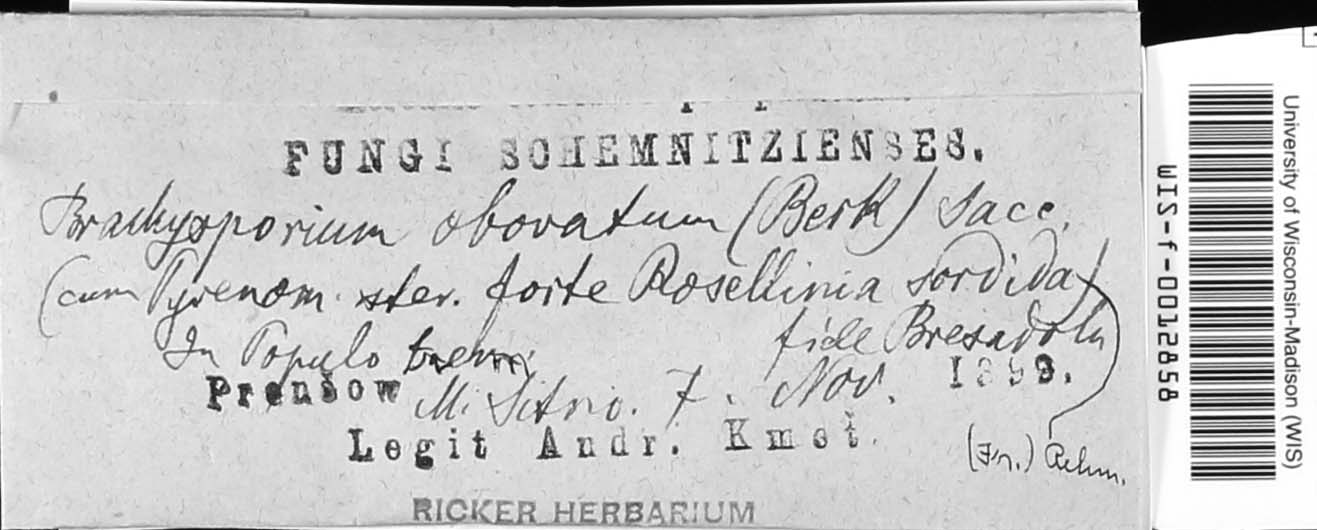 FUNGI SCHEMNITZIENSES.
Brachysporium obovatum (Berk) Sacc.
(cum Pyrenom. ster. forte Rosellinia sordida)
fide Bresadola
In Populo trem:
Prenšow M. Sitno. 7. Nov. 1899.
Legit Andr. Kmet.
(Fr.) Rehm.
RICKER HERBARIUM
University of Wisconsin-Madison (WIS)
WIS-f-0012858